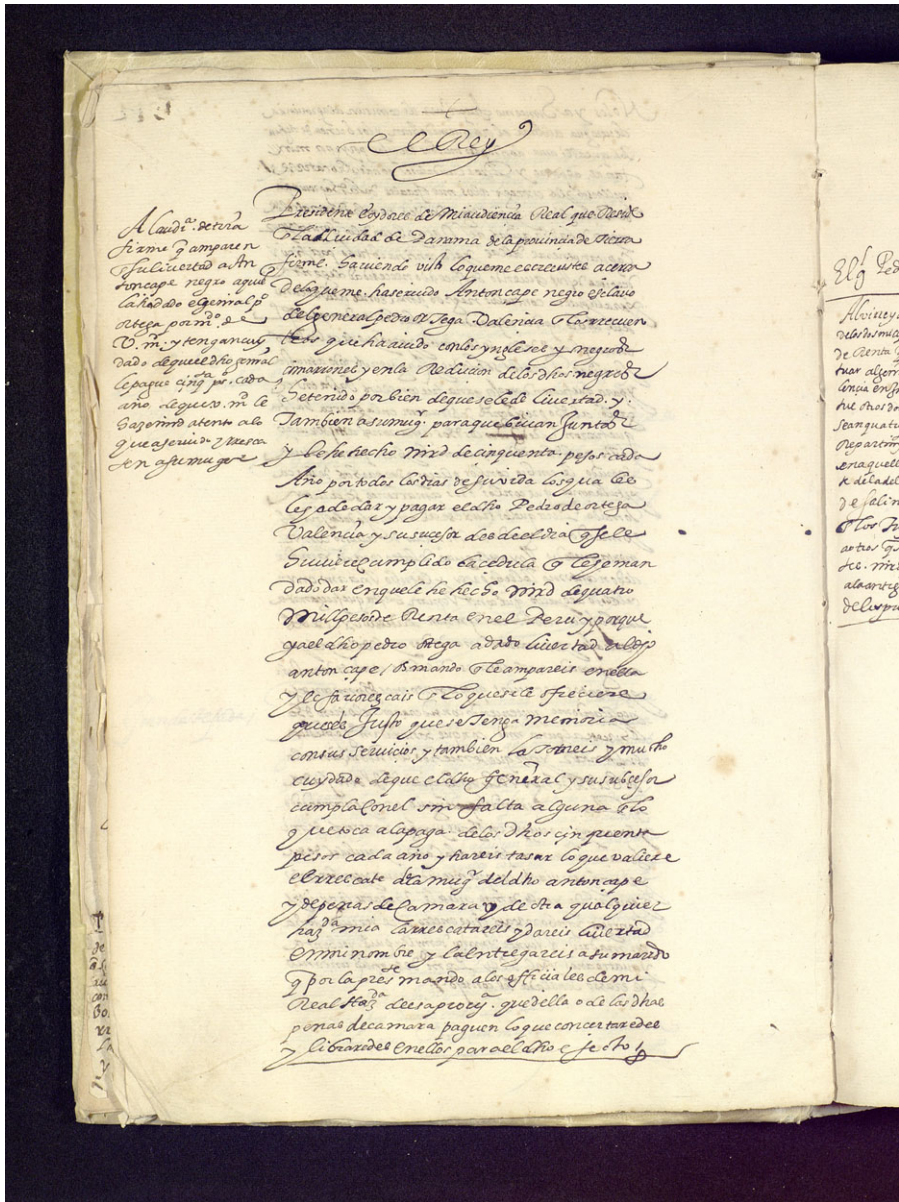 El Rey
A la audi.ª de trrã
firme q̃ amparen
en su livertad a An
ton cape negro aquiē
la ha dado el general pº
ortega por mdº de
V. mgᵗ y tengan cuy
dado de que el dho general
le pague cinqᵗᵃ pºs cada
año de que v. mgᵗ le
haze mrd atento a lo
que a servido y rresca
ten a su muger
Presidente e oydores de mi audiencia Real que Reside
en la ciudad de Panama de la provincia de Tierra
firme. Haviendo visto lo que me escrevistes acerca
de lo que me ha servido Anton cape negro esclavo
del general pedro ortega Valencia en los rrecuen
tros que ha avido con los yngleses y negros
cimarrones y en la Redicion de los dhos negros
he tenido por bien de que se le de livertad. y
Tambien a su mugʳ para que bivan Juntos
y le he hecho mrd de cinquenta pesos cada
Año por todos los dias de su vida los quales
les a de dar y pagar el dho Pedro de ortega
Valencia y su sucesor desde el dia q̃ se le
huviere cumplido la cedula q̃ le he man
dado dar en que le he hecho mrd de quatro
Mill pesos de Renta en el Peru y porque
ya el dho pedro ortega a dado livertad al dho
anton cape / Os mando q̃ le ampareis en ella
y le favorezcais en lo que se le ofreciere
que es Justo que se Tenga memoria
con sus servicios y tambien la Terneis y mucho
cuydado de que el dho general y su subcesor
cumpla con el sin falta alguna en lo
que toca a la paga de los dhos cinquenta
pesos cada año y hareis tasar lo que valiere
el rrescate de la mugʳ del dho anton cape
y de penas de camara y de otra qualquier
hazᵈᵃ mia la rrescatareis y dareis livertad
en mi nombre y la entregareis a su marido
q̃ por la presᵗᵉ mando a los officiales de mi
Real Hazᵈᵃ de esa provᵃ que della o de las dhas
penas de camara paguen lo que concertaredes
y libraredes en ellos para el dho efecto